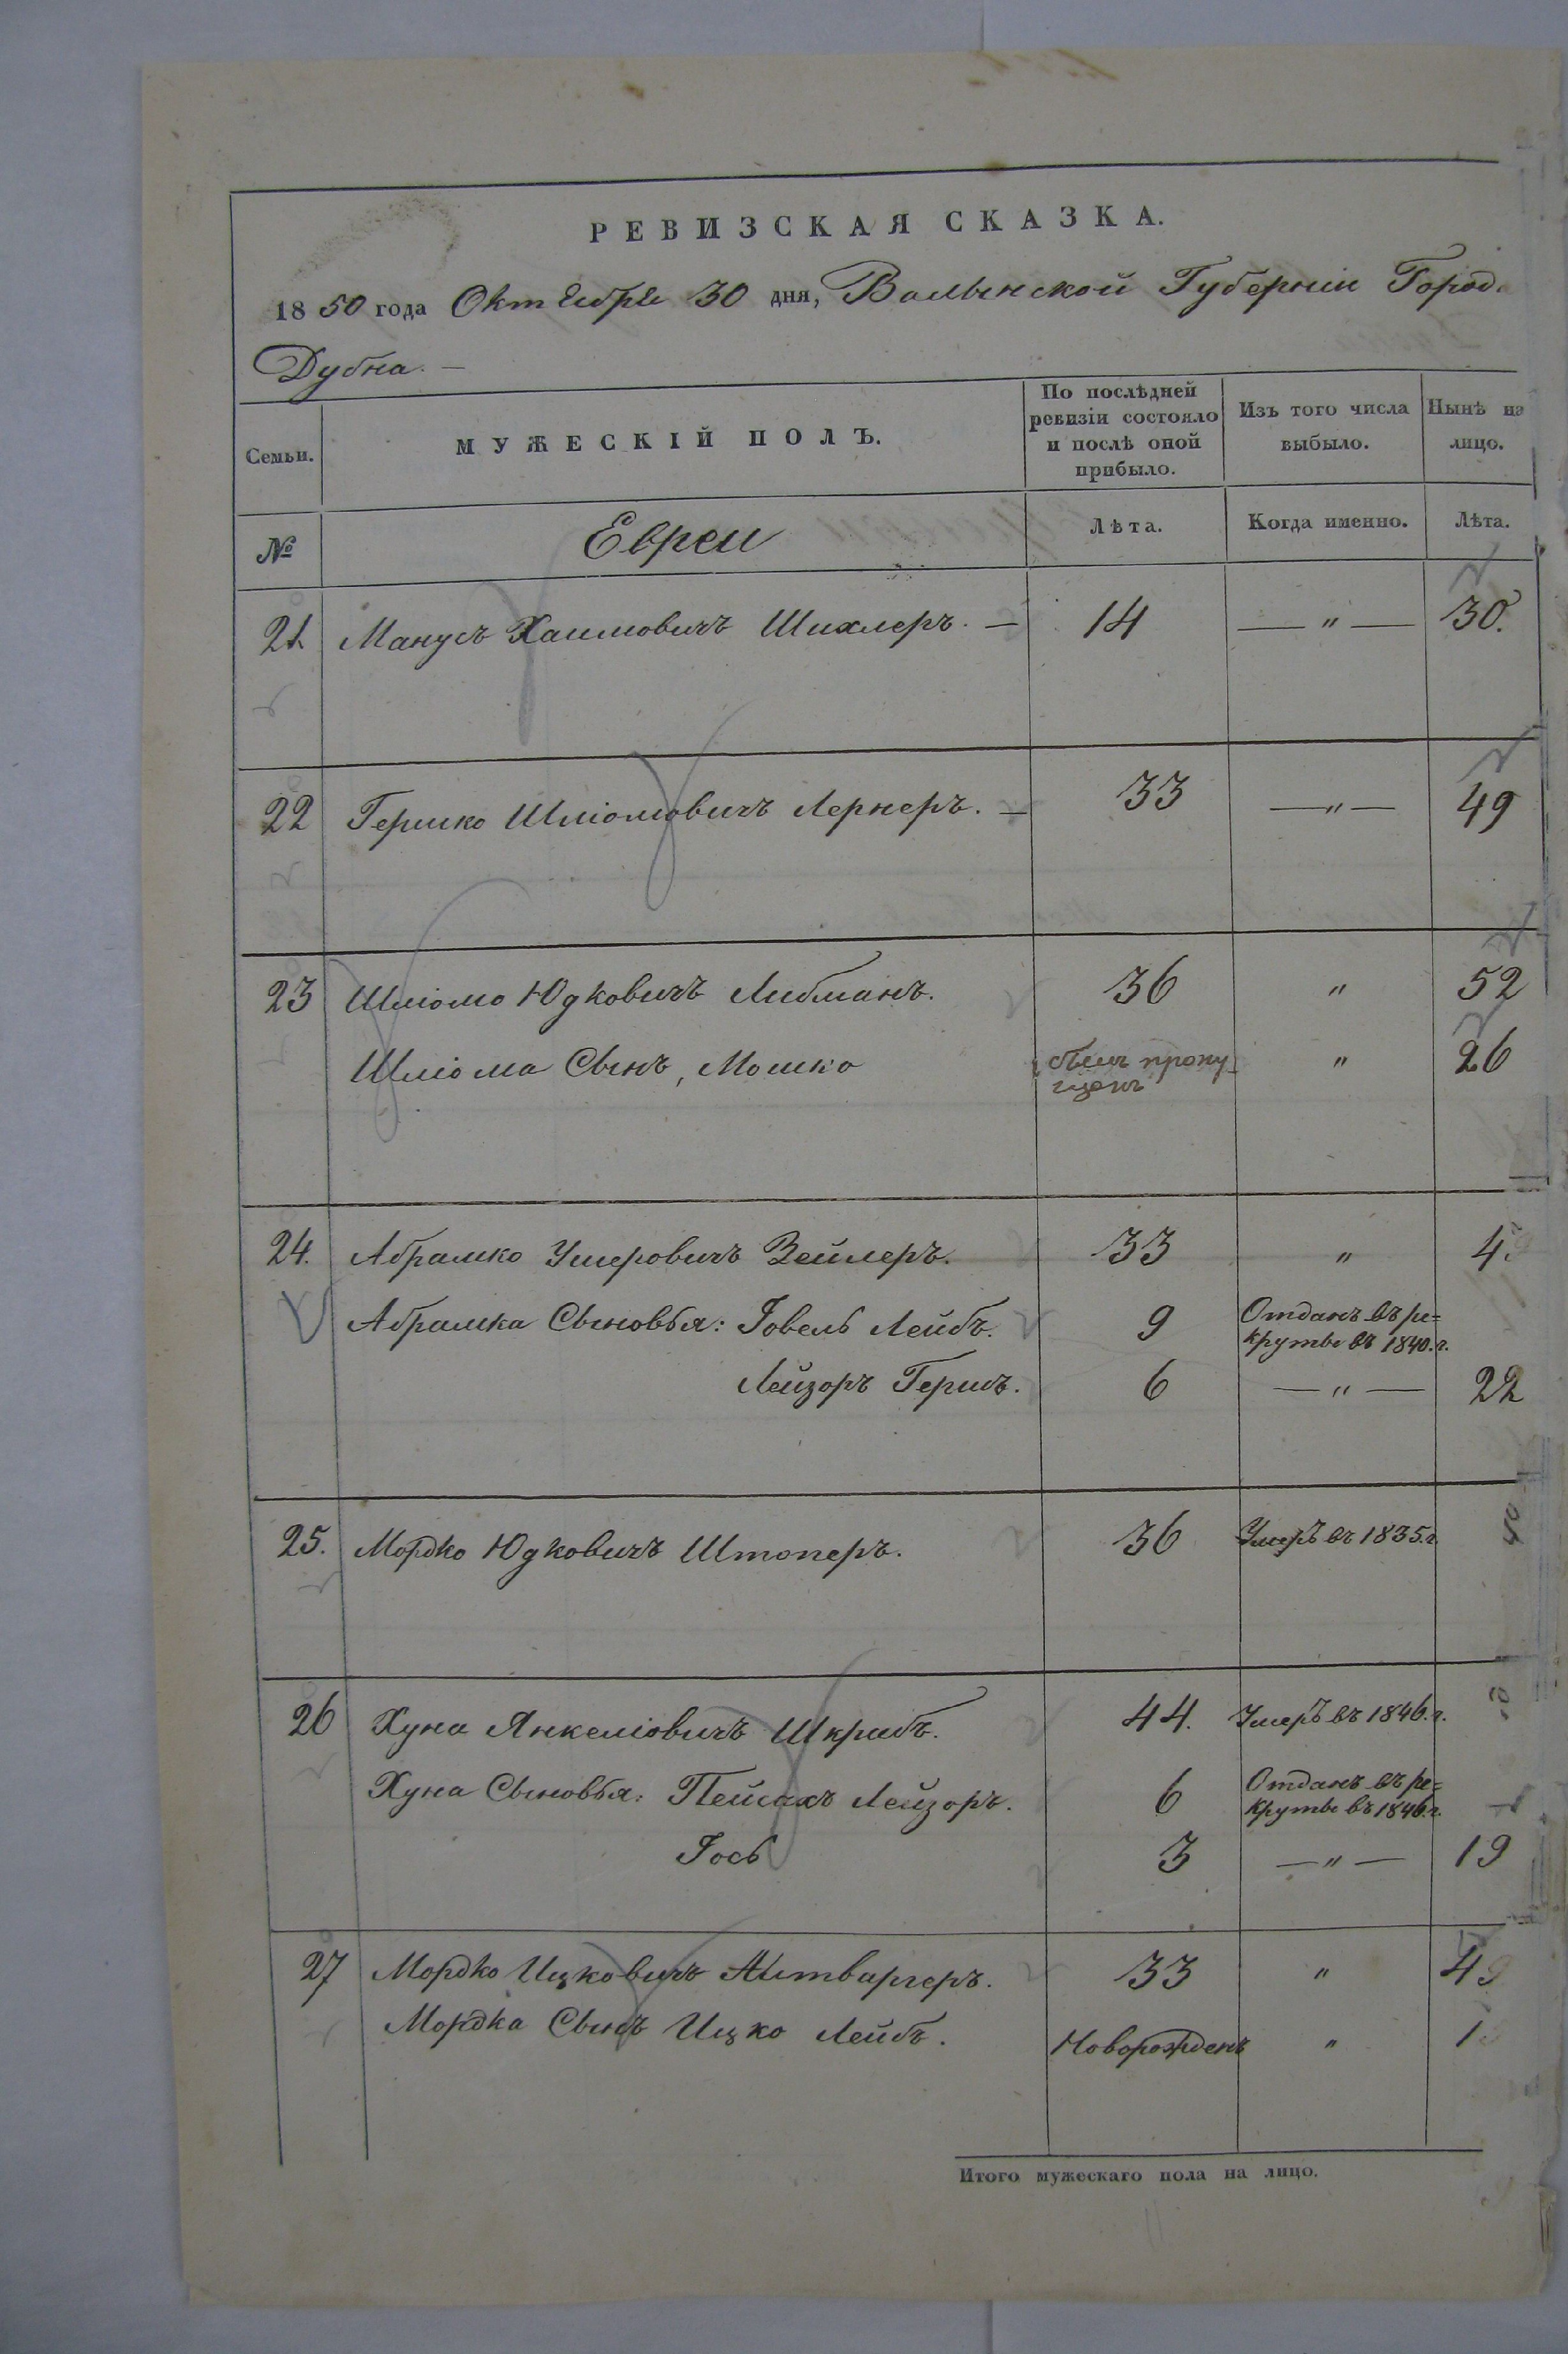 РЕВИЗСКАЯ СКАЗКА.
1850 года Октября 30 дня, Волынской Губерніи Город.
Дубна. —
Семьи. МУЖЕСКІЙ ПОЛЪ. По послѣдней ревизіи состояло и послѣ оной прибыло. Изъ того числа выбыло. Нынѣ на лицо.
№ Евреи Лѣта. Когда именно. Лѣта.
21. Манусъ Хаимовичъ Шихлеръ. — 14 — " — 30.
22 Гершко Шліомовичъ Лернеръ. — 33 — " — 49
23 Шліомо Юдковичъ Либманъ. 36 " 52
Шліома Сынъ, Мошко былъ пропу- " 26
щенъ
24. Абрамко Умеровичъ Зейлеръ. 33 " 4
Абрамка Сыновья: Іовель Лейбъ. 9 Отданъ въ ре=
круты въ 1840. г.
Лейзоръ Гершъ. 6 — " — 22
25. Мордко Юдковичъ Штоперъ. 36 Умеръ въ 1835. г.
26 Хуна Янкеліовичъ Шкрибъ. 44. Умеръ въ 1846. г.
Хуна Сыновья: Пейсахъ Лейзоръ. 6 Отданъ въ ре=
круты въ 1846. г.
Іось 3 — " — 19
27 Мордко Ицковичъ 33 " 49
Мордка Сынъ Ицко Лейбъ. Новорожденъ "
Итого мужескаго пола на лицо.